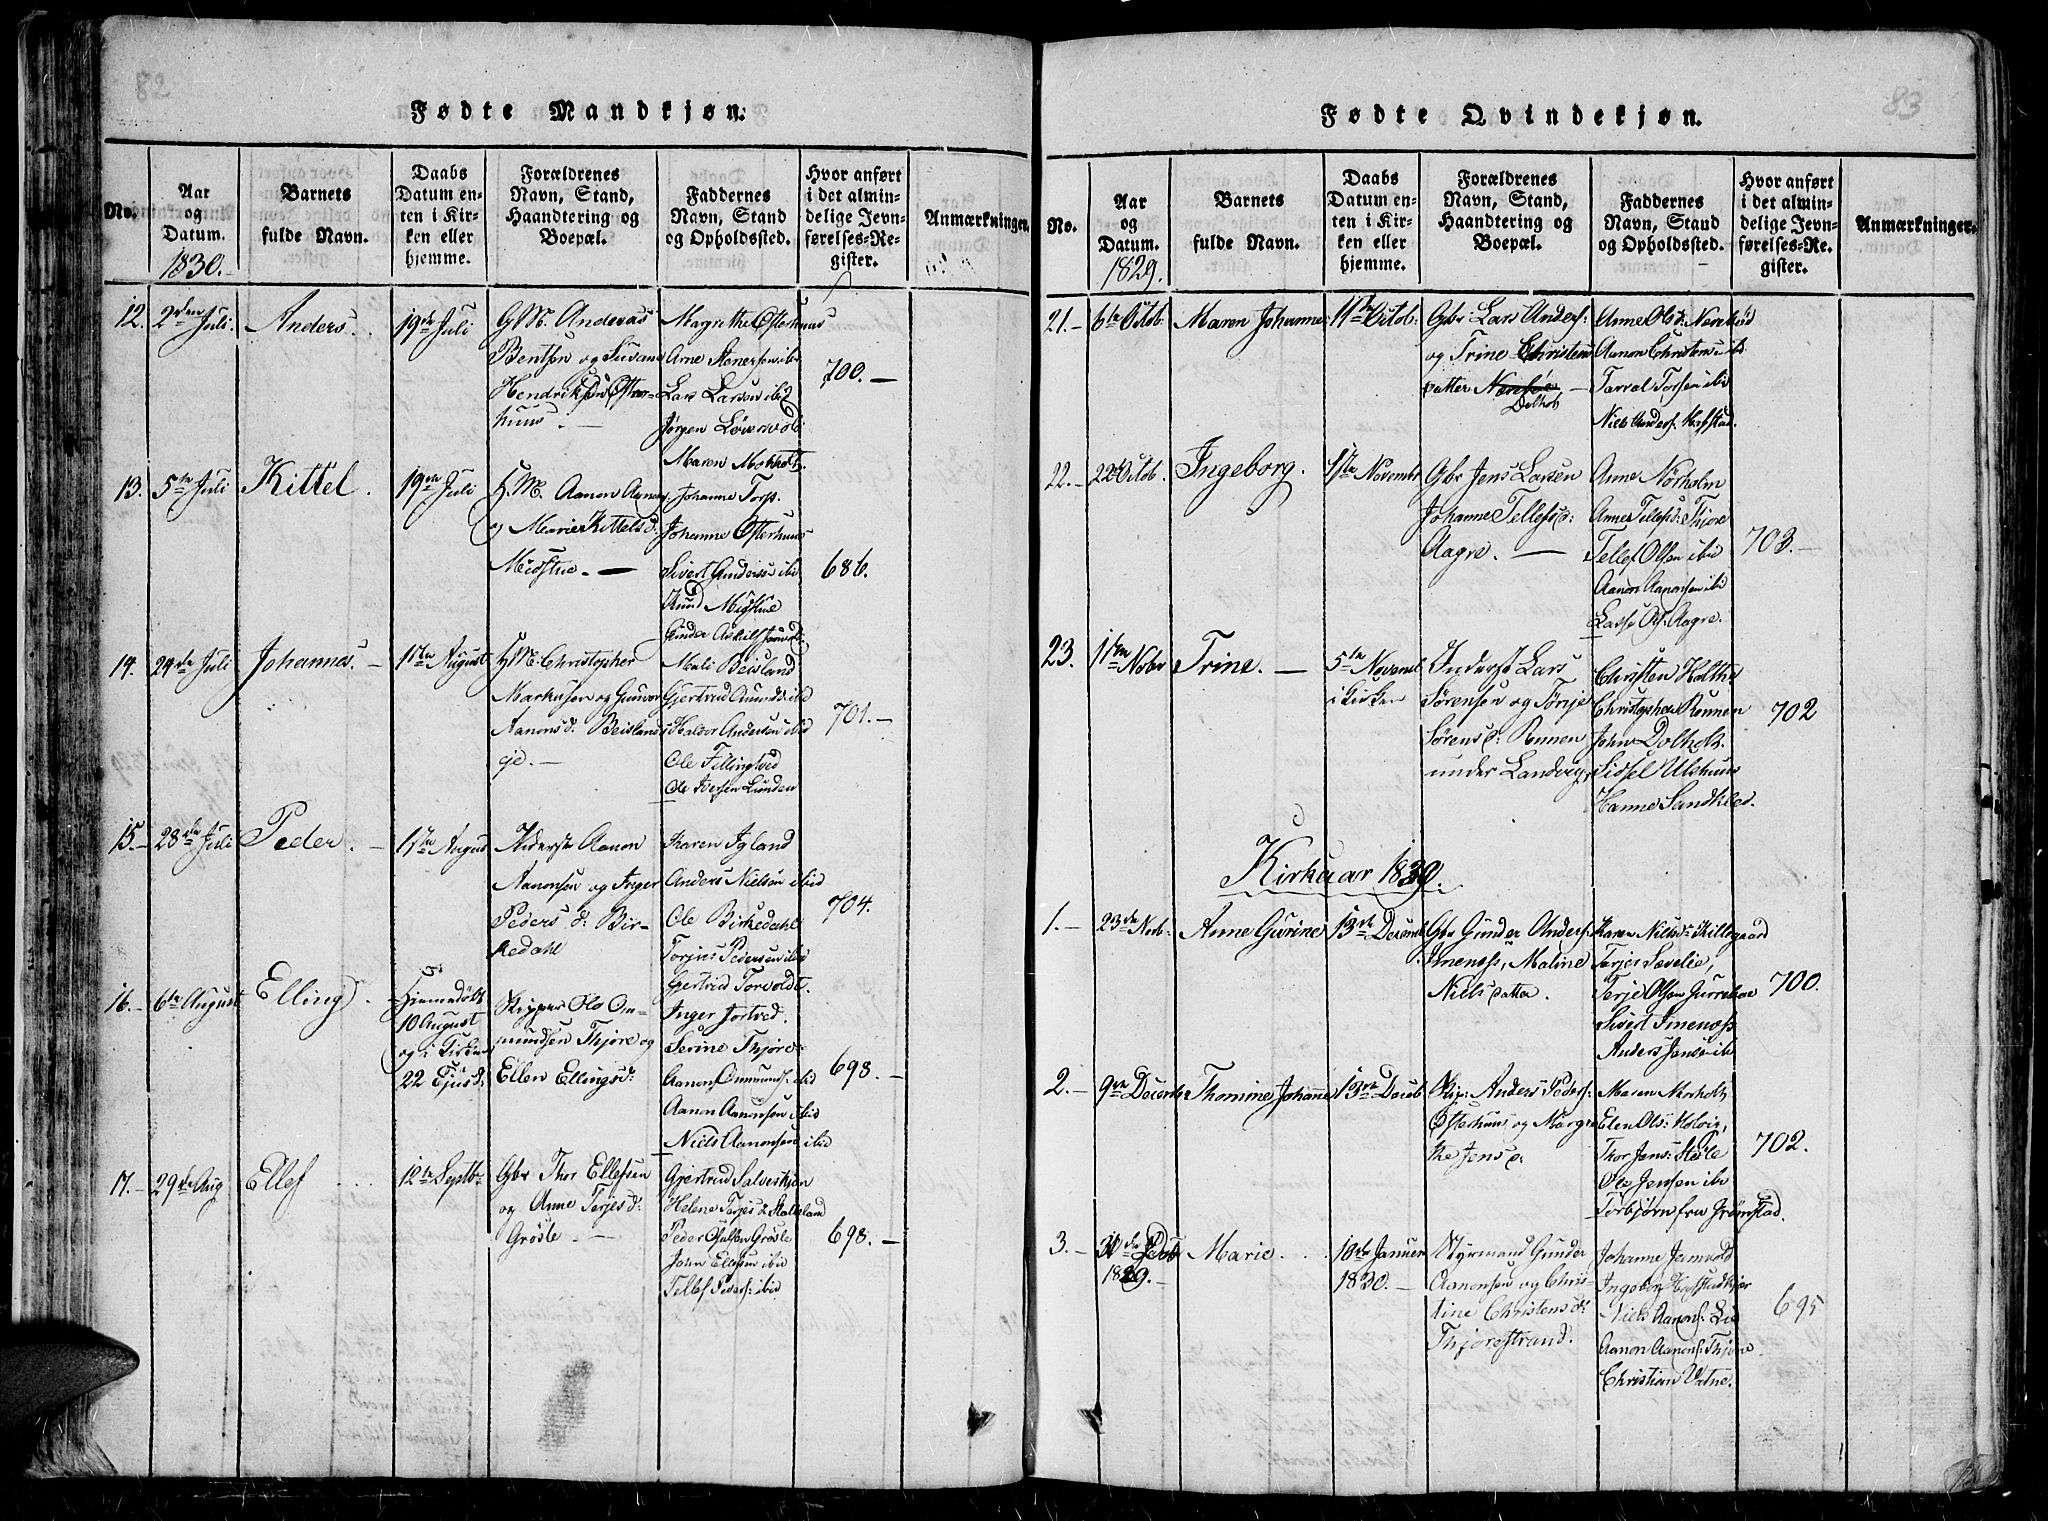 82
Fødte Mandkjøn.
No.
Aar
og
Datum.
1830.
Barnets
fulde Navn.
Daabs
Datum en-
ten i Kir-
ken eller
hjemme.
Forældrenes
Navn, Stand,
Haandtering og
Boepæl.
Faddernes
Navn, Stand
og Opholdssted.
Hvor anført
i det almin-
delige Jevn-
førelses-Re-
gister.
Anmærkninger.
12. 2den Juli. Anders. 19de Juli
G.M. Andreas
Bentsen og Susane
Hendriksdr Øster-
huus.
Margrethe Østerhuus
Arne Stenersen ibd
Lars Larsen ibid
Jørgen Løversvold
Maren Mokholt.
700.
13. 5te Juli Kittel. 19de Juli
H.M. Aanon Aanon
og Maren Kittelsd:
Midstue.
Johanne Torp.
Johanne Østerhuus
Sivert Gunders: ibid
Knud Midstue
Gunder Askils Jernvold
686.
14. 24de Juli Johannes. 1ste August
H.M. Christopher
Markusen og Gunvor
Aanonsd: Beisland
eje.
Mali Beisland
Gjertrud Omunds: ibid
Halvor Andersen ibid
Ole Fellingtved
Ole Iversen Lunden
701.
15. 28de Juli Peder. 1ste August
Inderste Aanon
Aanonsen og Inger
Pedersd: Bir-
kedahl
Karen Igland
Anders Nielsen ibid
Ole Birkedahl
Torjus Pedersen ibid
Gjertrud Torvolds.
704.
16. 6te August Elling.
Hjemmedøbt
10 August
og i Kirken
22 Ejusd:
Skipper Ole Om-
mundsen Thjøre og
Ellen Ellingsd:
Inger Jortved.
Serine Thjøre
Aanon Ommunds: ibid
Aanon Aanonsen ibid
Niels Aanonsen ibid
698.
17. 29de Aug Ellef 12te Septb:
Gbr Thor Ellefsen
og Anne Terjesd:
Grøsle
Gjertrud Salveskjøn
Helene Terjesd Stalleland
Peder Olsen Grøsle
John Ellefsen ibid
Tellef Peders: ibid
698.
83
Fødte Qvindekjøn.
No.
Aar
og
Datum.
1829.
Barnets
fulde Navn.
Daabs
Datum en-
ten i Kir-
ken eller
hjemme.
Forældrenes
Navn, Stand,
Haandtering og
Boepæl.
Faddernes
Navn, Stand
og Opholdssted.
Hvor anført
i det almin-
delige Jevn-
førelses-Re-
gister.
Anmærkninger.
21. 6te Octob: Maren Johanne 11te Octob:
Gbr Lars Anders:
og Trine Christens
datter
Dolholt
Anne Olsd: Nerebød
Aanon Christens: ibd
Tarral Torsen ibid
Niels Anders: Hafstad.
22. 22 Octob. Ingeborg. 1ste November
Gbr Jens Larsen
Johanne Tellefsd:
Aagre.
Anne Norholm
Anne Tellefsd: Thjøre
Tellef Olsen ibid
Aanon Aanonsen ibid
Lasse Ols: Aagre.
703.
23. 1ste Nobr Trine. 5te Novemb
i kirken
Inderst Lars
Sørensen og Tønje
Sørensd: Rønnen
under Landvig
Christen Holthe
Christopher Rønnen
John Dolholt.
Sidsel Ulehuus
Hanne Sandkleb.
702
Kirkeaar 1830.
1. 23de Novb. Anne Gurine 13de Decemb
Gbr Gunder Anders:
Imenæss, Maline
Nielsdatter.
Karen Nielsd: Killegaard
Terjes Sævelie,
Terje Olsen Jurrekoe
Sivert Imenæss
Anders Jense ibd
700.
2. 9de Decemb Thomine Johanne 13de Deceb
Skip: Anders Peders:
Østerhuus og Margre
the Jensd:
Maren Morholt
Elen Ols: Holvig,
Thor Jens: Støle
Ole Jensen ibd
Torbjørn fra Grømstad.
702.
3. 30de Decb
1829.
Marie
10de Januer
1830.
Styrmand Gunder
Aanonsen og Chris-
tine Christensd:
Thjørestrand.
Johanne Jernvold
Ingebor Hafstadkjær
Niels Aanons: Lid
Aanon Aanons: Thjøre
Christian Vatne.
695